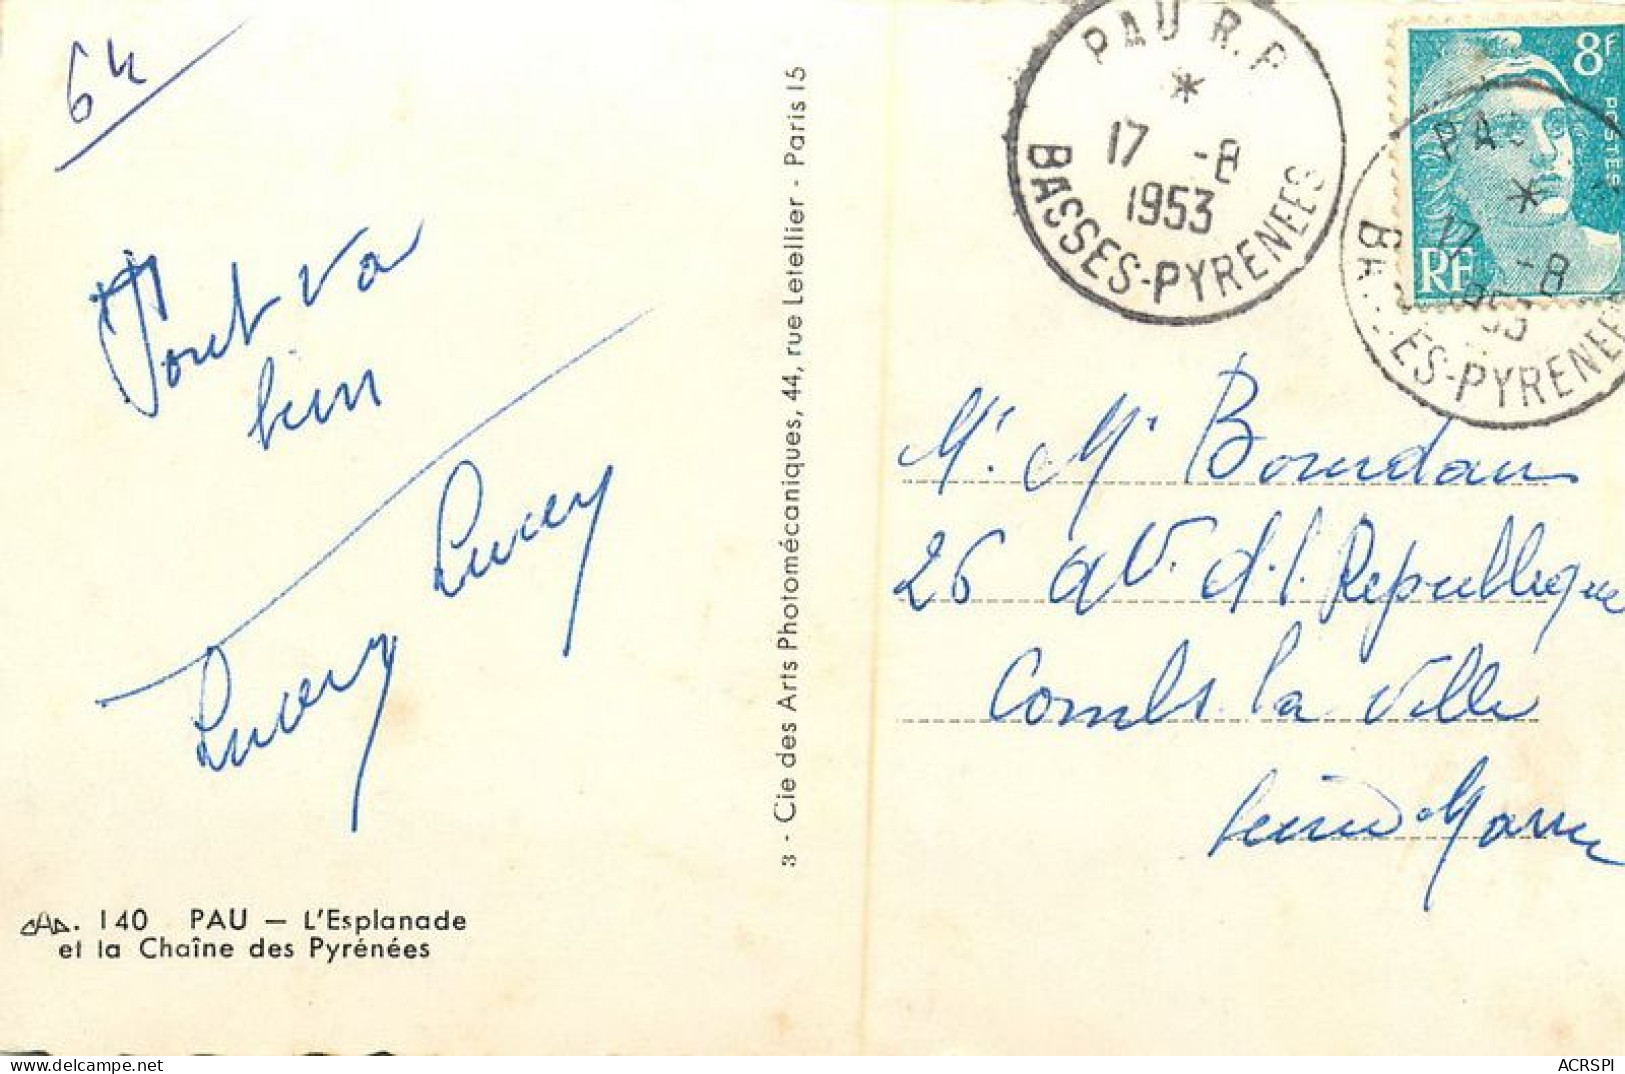 64
Tout va
bien
Lucey
Lucey
140 PAU — L'Esplanade
et la Chaîne des Pyrénées
3 - Cie des Arts Photomécaniques, 44, rue Letellier - Paris 15
PAU R.P
17 -8
1953
BASSES-PYRENEES
8F
POSTES
RF
PAU
17 -8
1953
ES-PYRENEE
Mr. Me Bourdan
26 av. d. l. République
Combs. la Ville
Seine Marne
ACRSPI